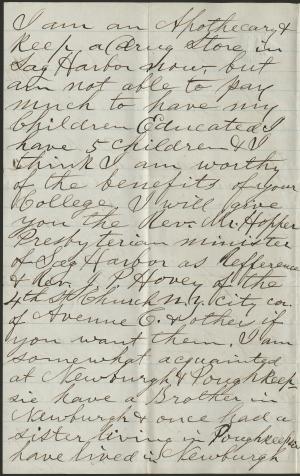 I am an Apothecary &
keep a Drug Store in
Sag Harbor now, but
am not able to pay
much to have my
Children Educated I
have 5 children & I
think I am worthy
of the benefits of your
College. I will give
you the Rev. Mr. Hopper
Presbyterian minister
of Sag Harbor as Refference
& Rev. J P Hovey of the
4th St Church N.Y. City co.
of Avenue C. & other if
you want them. I am
somewhat acquainted
at Newburgh & Poughkeep
sie have a Brother in
Newburgh & once had a
sister living in Poughkeepsie
have lived in Newburgh